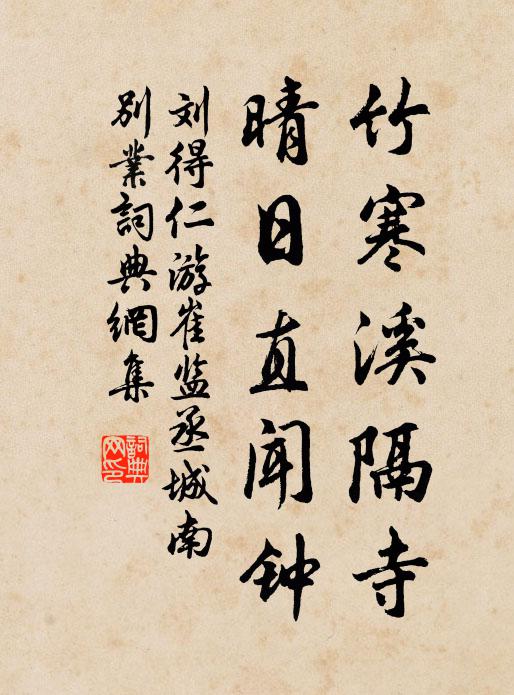 竹寒溪隔寺
晴日直闻钟
刘得仁游崔监丞城南
别业詞典網集
詞典网印